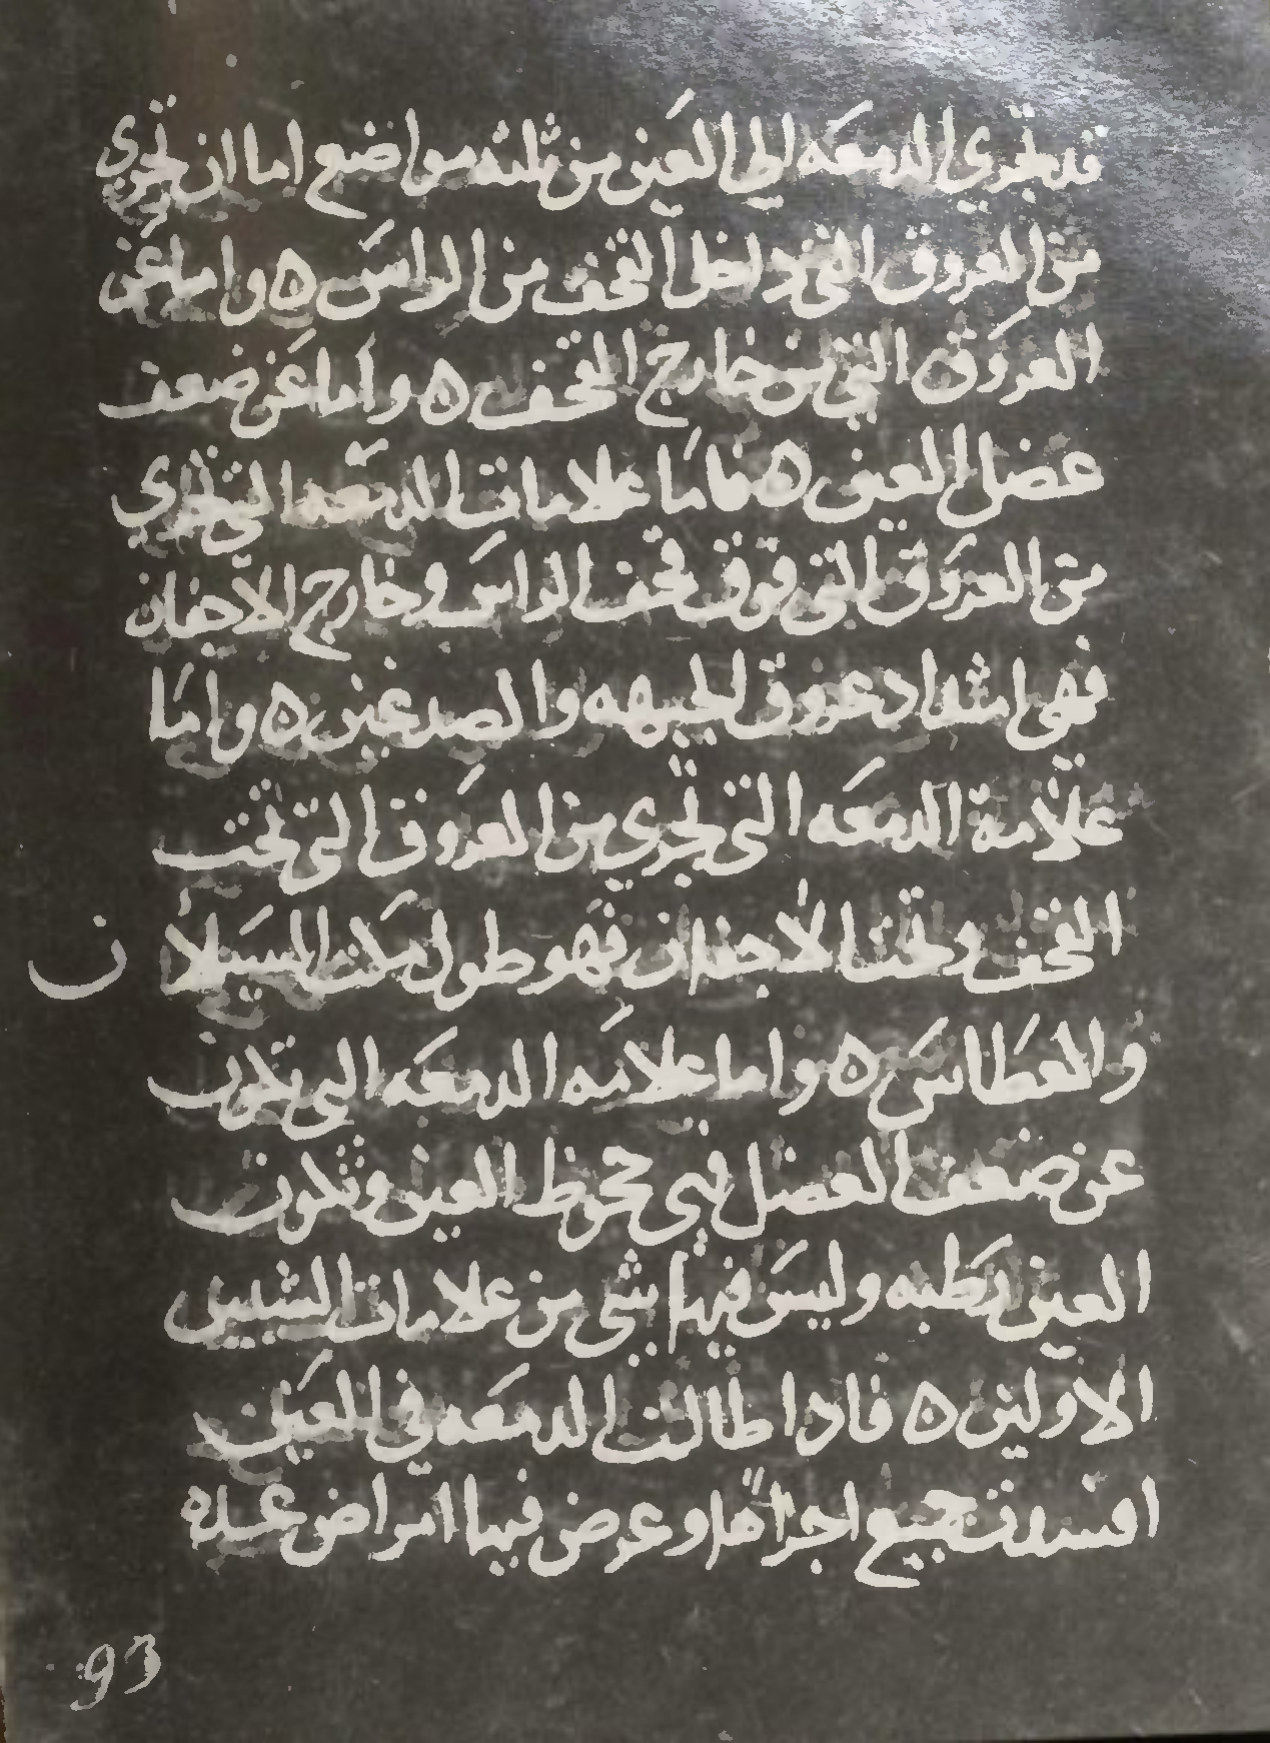 قد تجري الدمعه الي العين من ثلثه مواضع اما ان تجري
من العروق التي داخل القحف من الراس ه واما عن
العروق التي من خارج القحف ه واما عن ضعف
عضل العين ه فاما علامات الدمعه التي تجري
من العروق التي فوق قحف الراس وخارج الاجفان
فهي امتداد عروق الجبهه والصدغين ه واما
علامة الدمعه التي تجري من العروق التي تحت
القحف وتحت الاجفان فهو طول مكث السيلان
والعطاس ه واما علامه الدمعه التي تكون
عن ضعف العضل فهي جحوظ العين وتكون
العين رطبه وليس فيها شي من علامات الشيين
الاولين ه فاذا طالت الدمعه في العين
افسدت جميع اجزاها وعرض فيها امراض عده
93